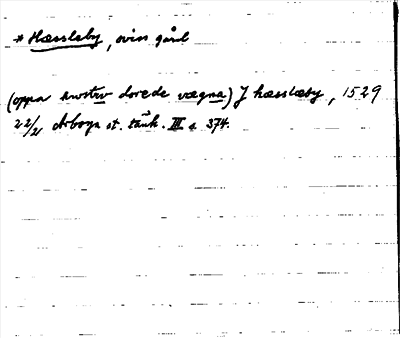 * Hæssleby, oviss gård
(oppa knostrw dorede vægna) J hæsslæby, 1529
22/2 Arboga st. tänk. III s. 374.